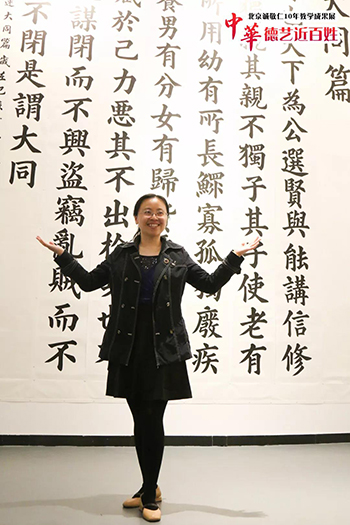 北京诚敬仁10年教学成果展
中華德艺近百姓
大同篇
天下為公選賢與能講信修
其親不獨子其子使老有
所用幼有所長鰥寡孤獨廢疾
養男有分女有歸
於己力惡其不出於
謀閉而不興盜竊亂賊而不
不閉是謂大同
大同篇 歲在己